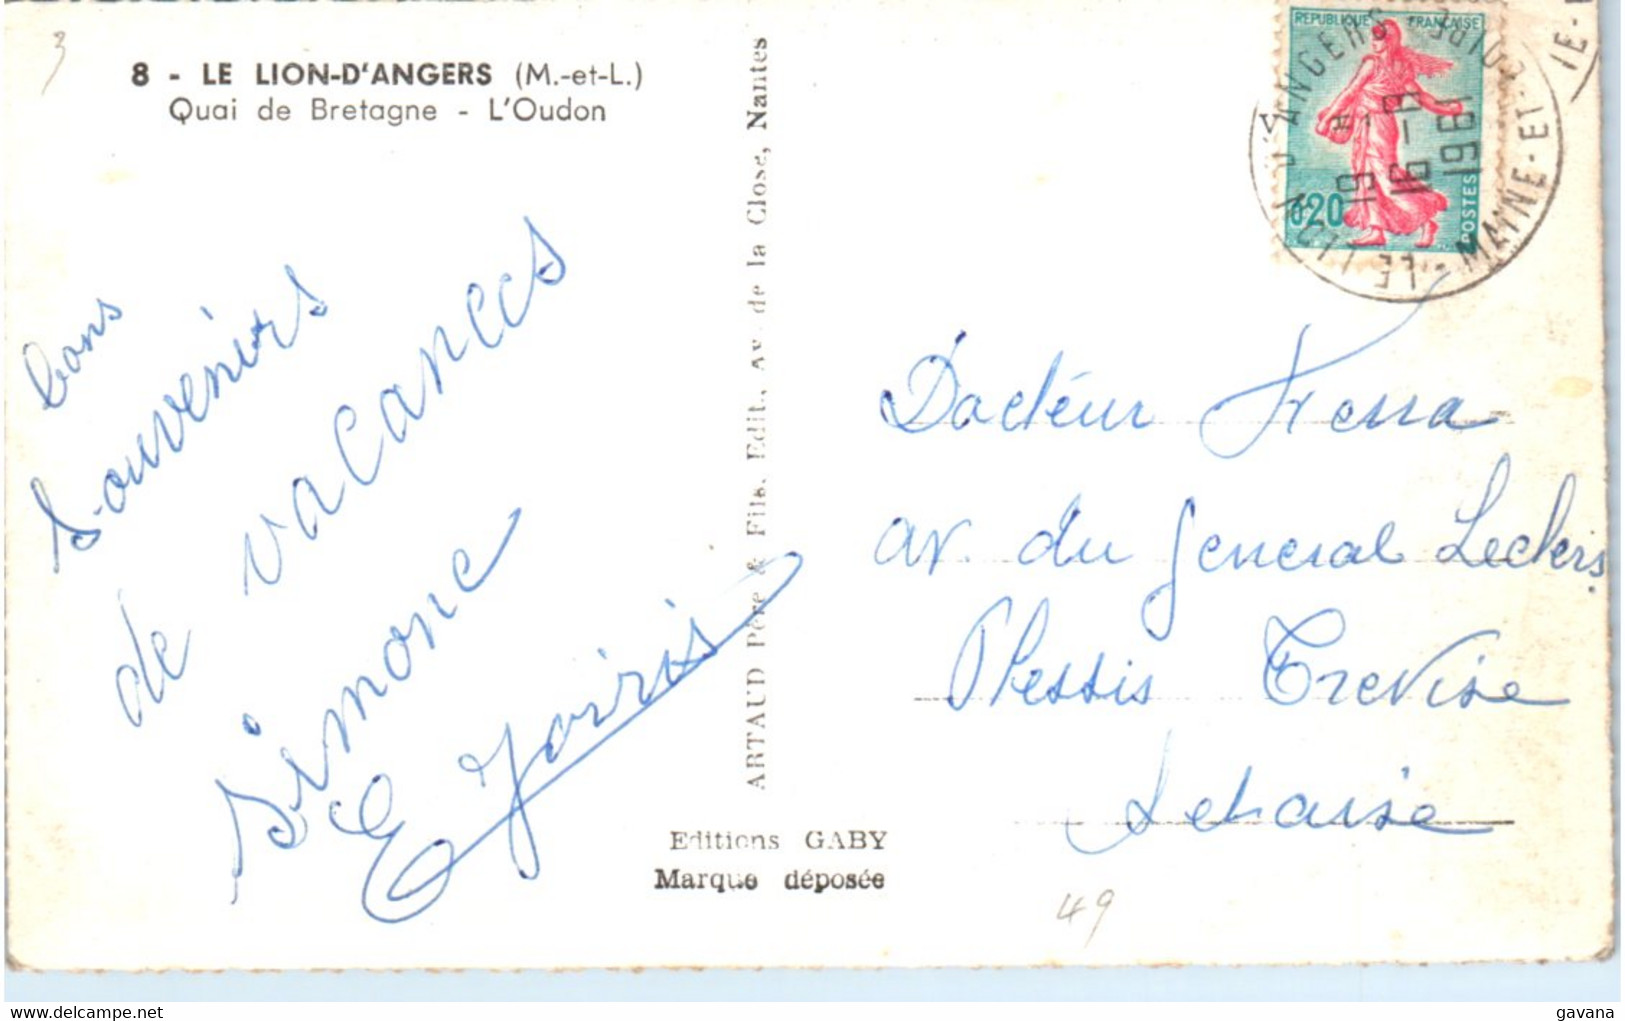 3
8 - LE LION-D'ANGERS (M.-et-L.)
Quai de Bretagne - L'Oudon
bons
Souvenirs
de vacances
Simone
E
ARTAUD Père & Fils, Edit., Av. de la Close, Nantes
Editions GABY
Marque déposée
REPUBLIQUE FRANÇAISE
0,20
POSTES
LE LION D'ANGERS
MAINE-ET-LOIRE
16-9
1961
Docteur
av. du General Leclers
Plessis Trevise
49